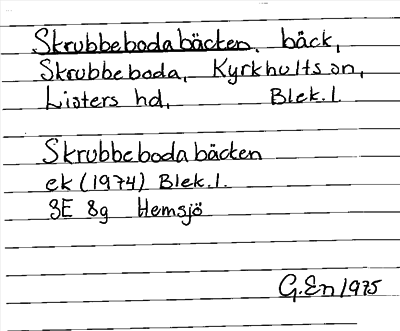 Skrubbebodabäcken, bäck,
Skrubbeboda, Kyrkhults sn,
Listers hd, Blek. l.
Skrubbebodabäcken
ek (1974) Blek. l.
3E 8g Hemsjö
G. En 1975